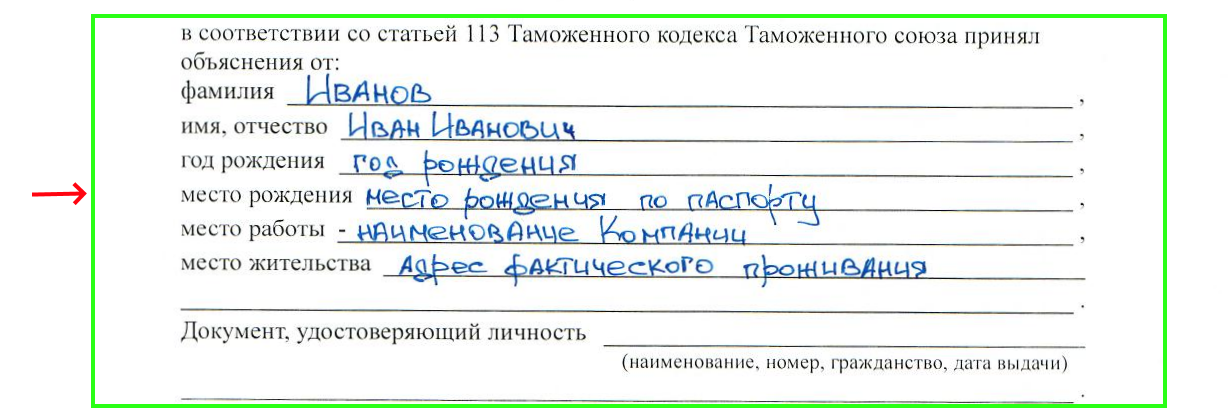 в соответствии со статьей 113 Таможенного кодекса Таможенного союза принял
объяснения от:
фамилия Иванов,
имя, отчество Иван Иванович,
год рождения год рождения,
место рождения место рождения по паспорту,
место работы - наименование Компании,
место жительства Адрес фактического проживания
.
Документ, удостоверяющий личность
(наименование, номер, гражданство, дата выдачи)
.